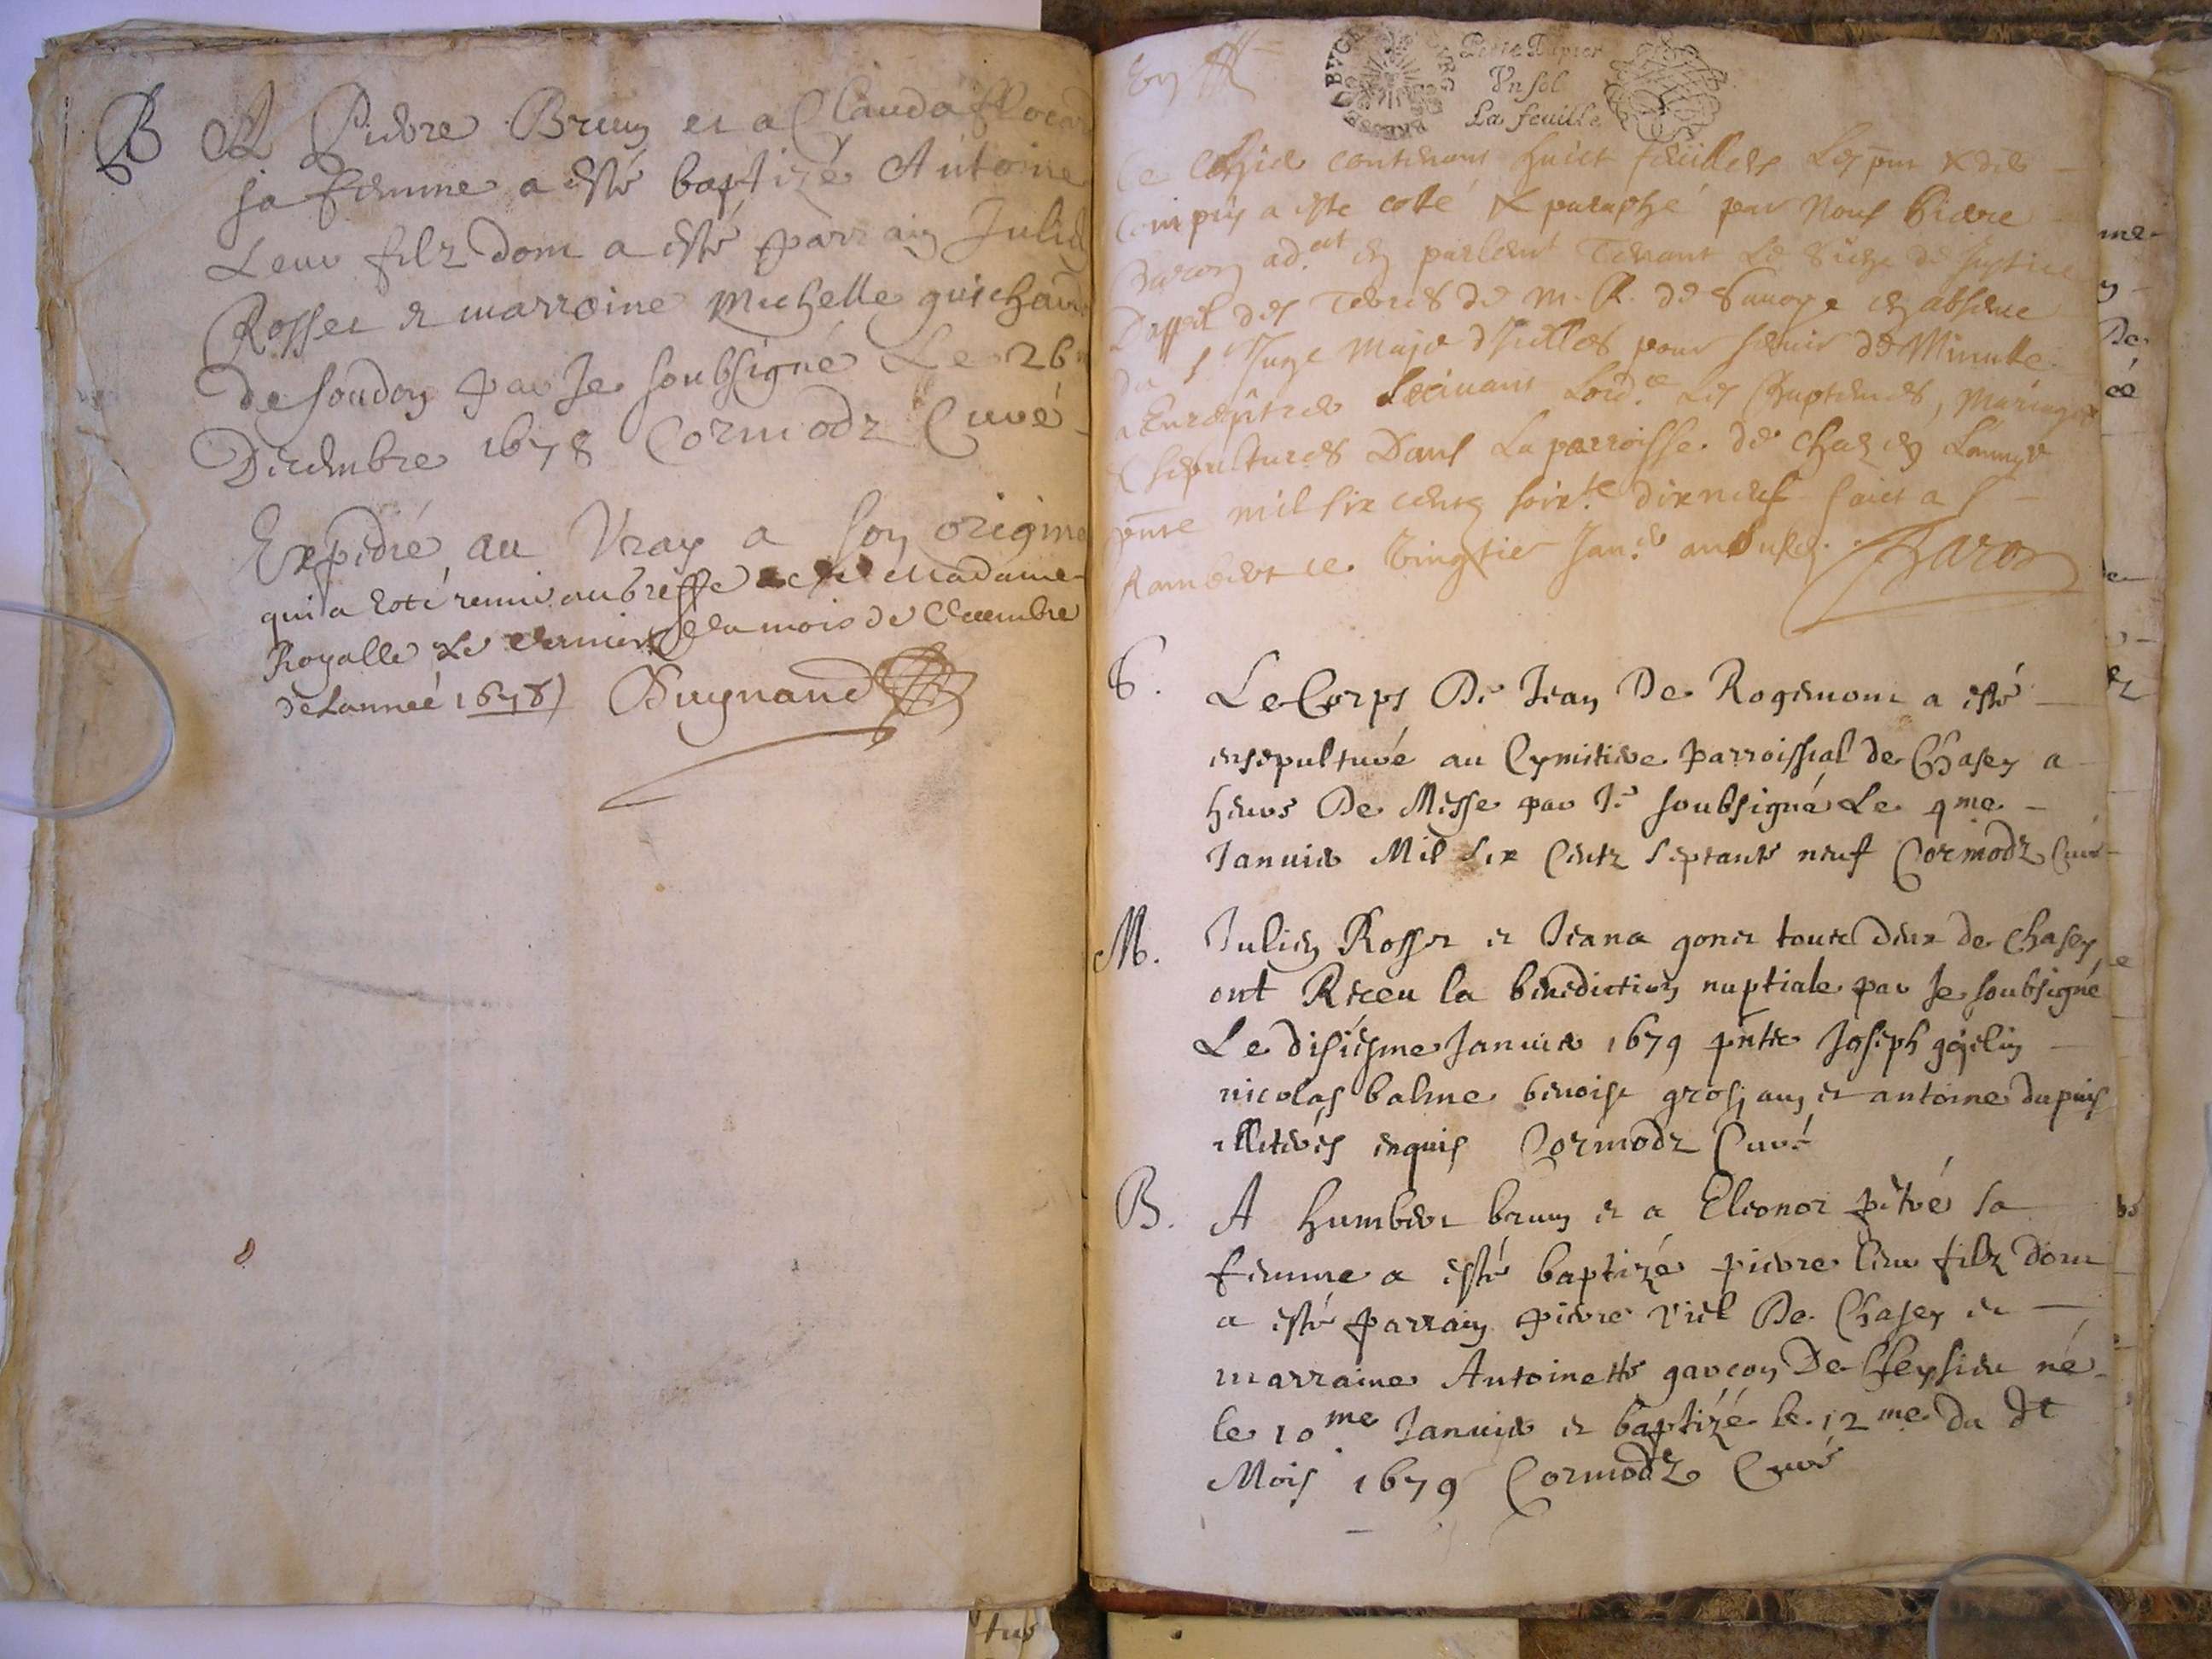 B A Pierre Brun et a Clauda
sa femme a esté baptizé Antoine
Leur filz dont a esté parrain Julien
Rosset et marraine Michelle guichard
de soudon par Je soubsigné Le 26
Decembre 1678 Cormodz Curé
Expedié au Vray a son origina
qui a esté remis au greffe de Madame
Royalle Le dernier du mois de decembre
de Lanneé 1678) Bugnand
BUGE
Un sol
La feuille
Ce Cahier contenant huict feuillets Le pnt
Compris a este coté & paraphé par Nous Pierre
Baron ad.at en parlemt Tenant Le Siege de Justice
D'appel des Terres de M. R. de Savoye en absence
du Sr Juge Maje d'Icelles pour servir de Minute
a Enregistrer suivant Lord.ce Les Baptemes, Mariages
& sepultures Dans La parroisse de Chazey Lannee
pnte mil six cents soix.te dix neuf faict a St
Rambert ce Vingtie Jan.er an susd. Baron
S. Le Corps De Jean De Rogemont a esté
ensepulturé au Cymitiere parroissial de Chasey a
heure De Messe par Je soubsigné Le 4me
Januier Mil six Centz septante neuf Cormodz Curé
M. Julien Rosset et Jeana gonet tout deux de Chasey
ont Receu la benediction nuptiale par Je soubsigné
Le disiesme Januier 1679 pntz Joseph
nicolas balme benoist grosjan et antoine dupuis
illiterés enquis Cormodz Curé
B. A humbert brun et a Eleonor pitré sa
femme a esté baptizé pierre leur filz dont
a esté parrain pierre Viel De Chasey et
marraine Antoinette garcon De Leysieu né
le 10me Januier et baptizé le 12me du dt
Mois 1679 Cormodz Curé